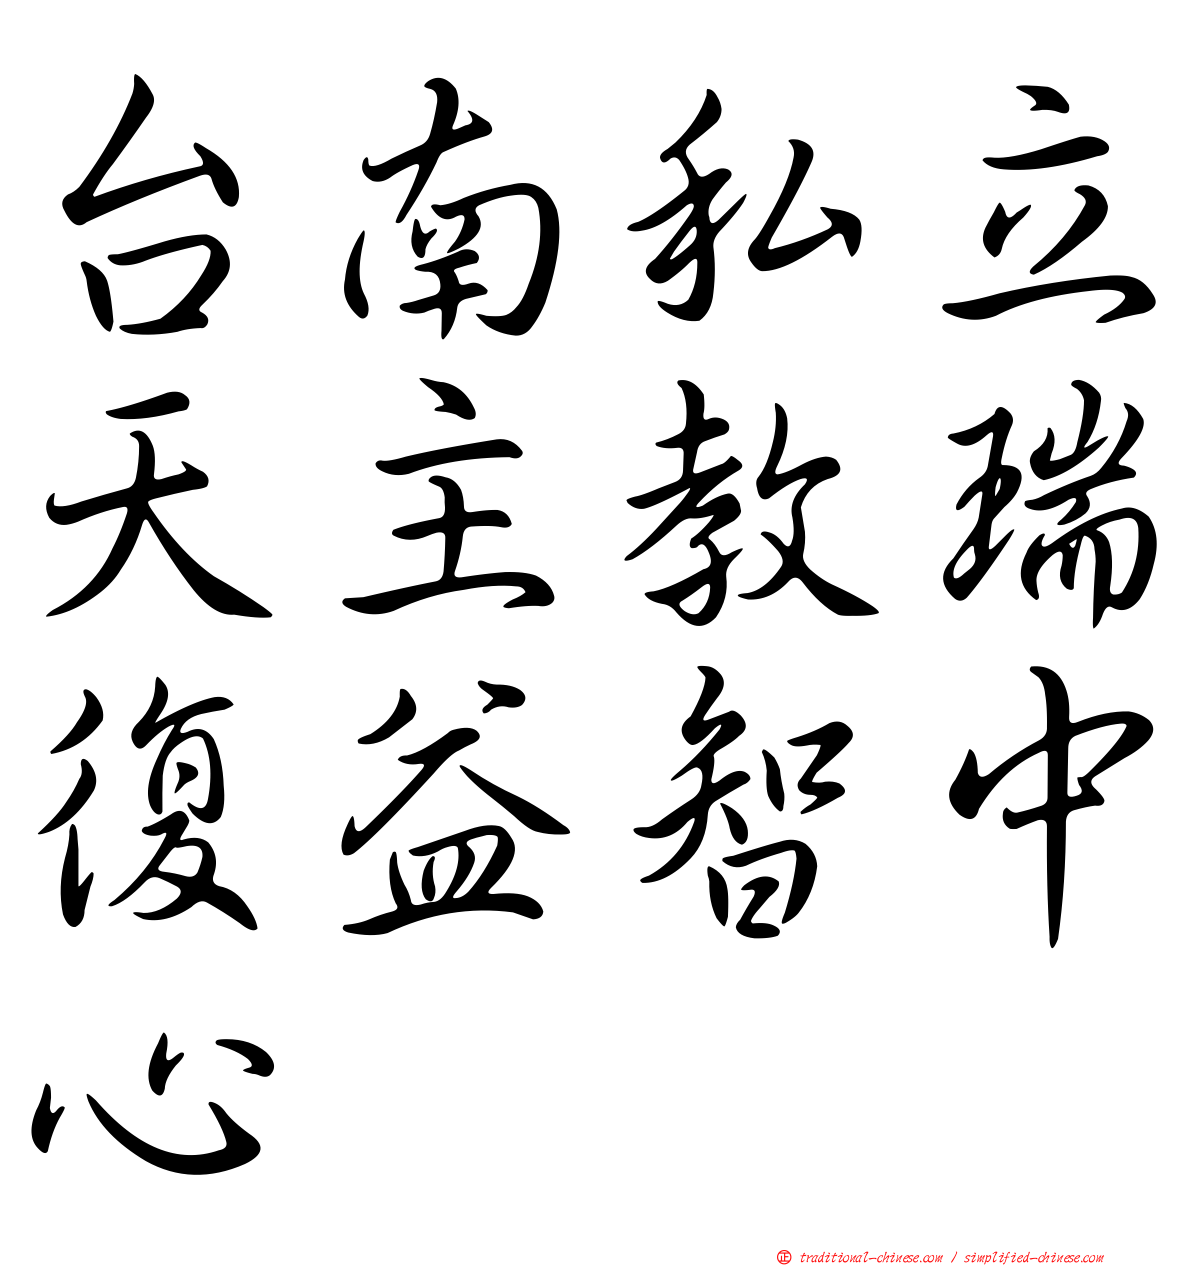 台南私立
天主教瑞
復益智中
心
㊣ traditional-chinese.com / simplified-chinese.com